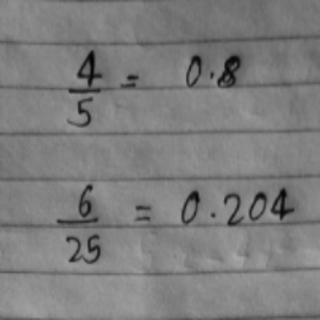 4/5 = 0.8
6/25 = 0.204